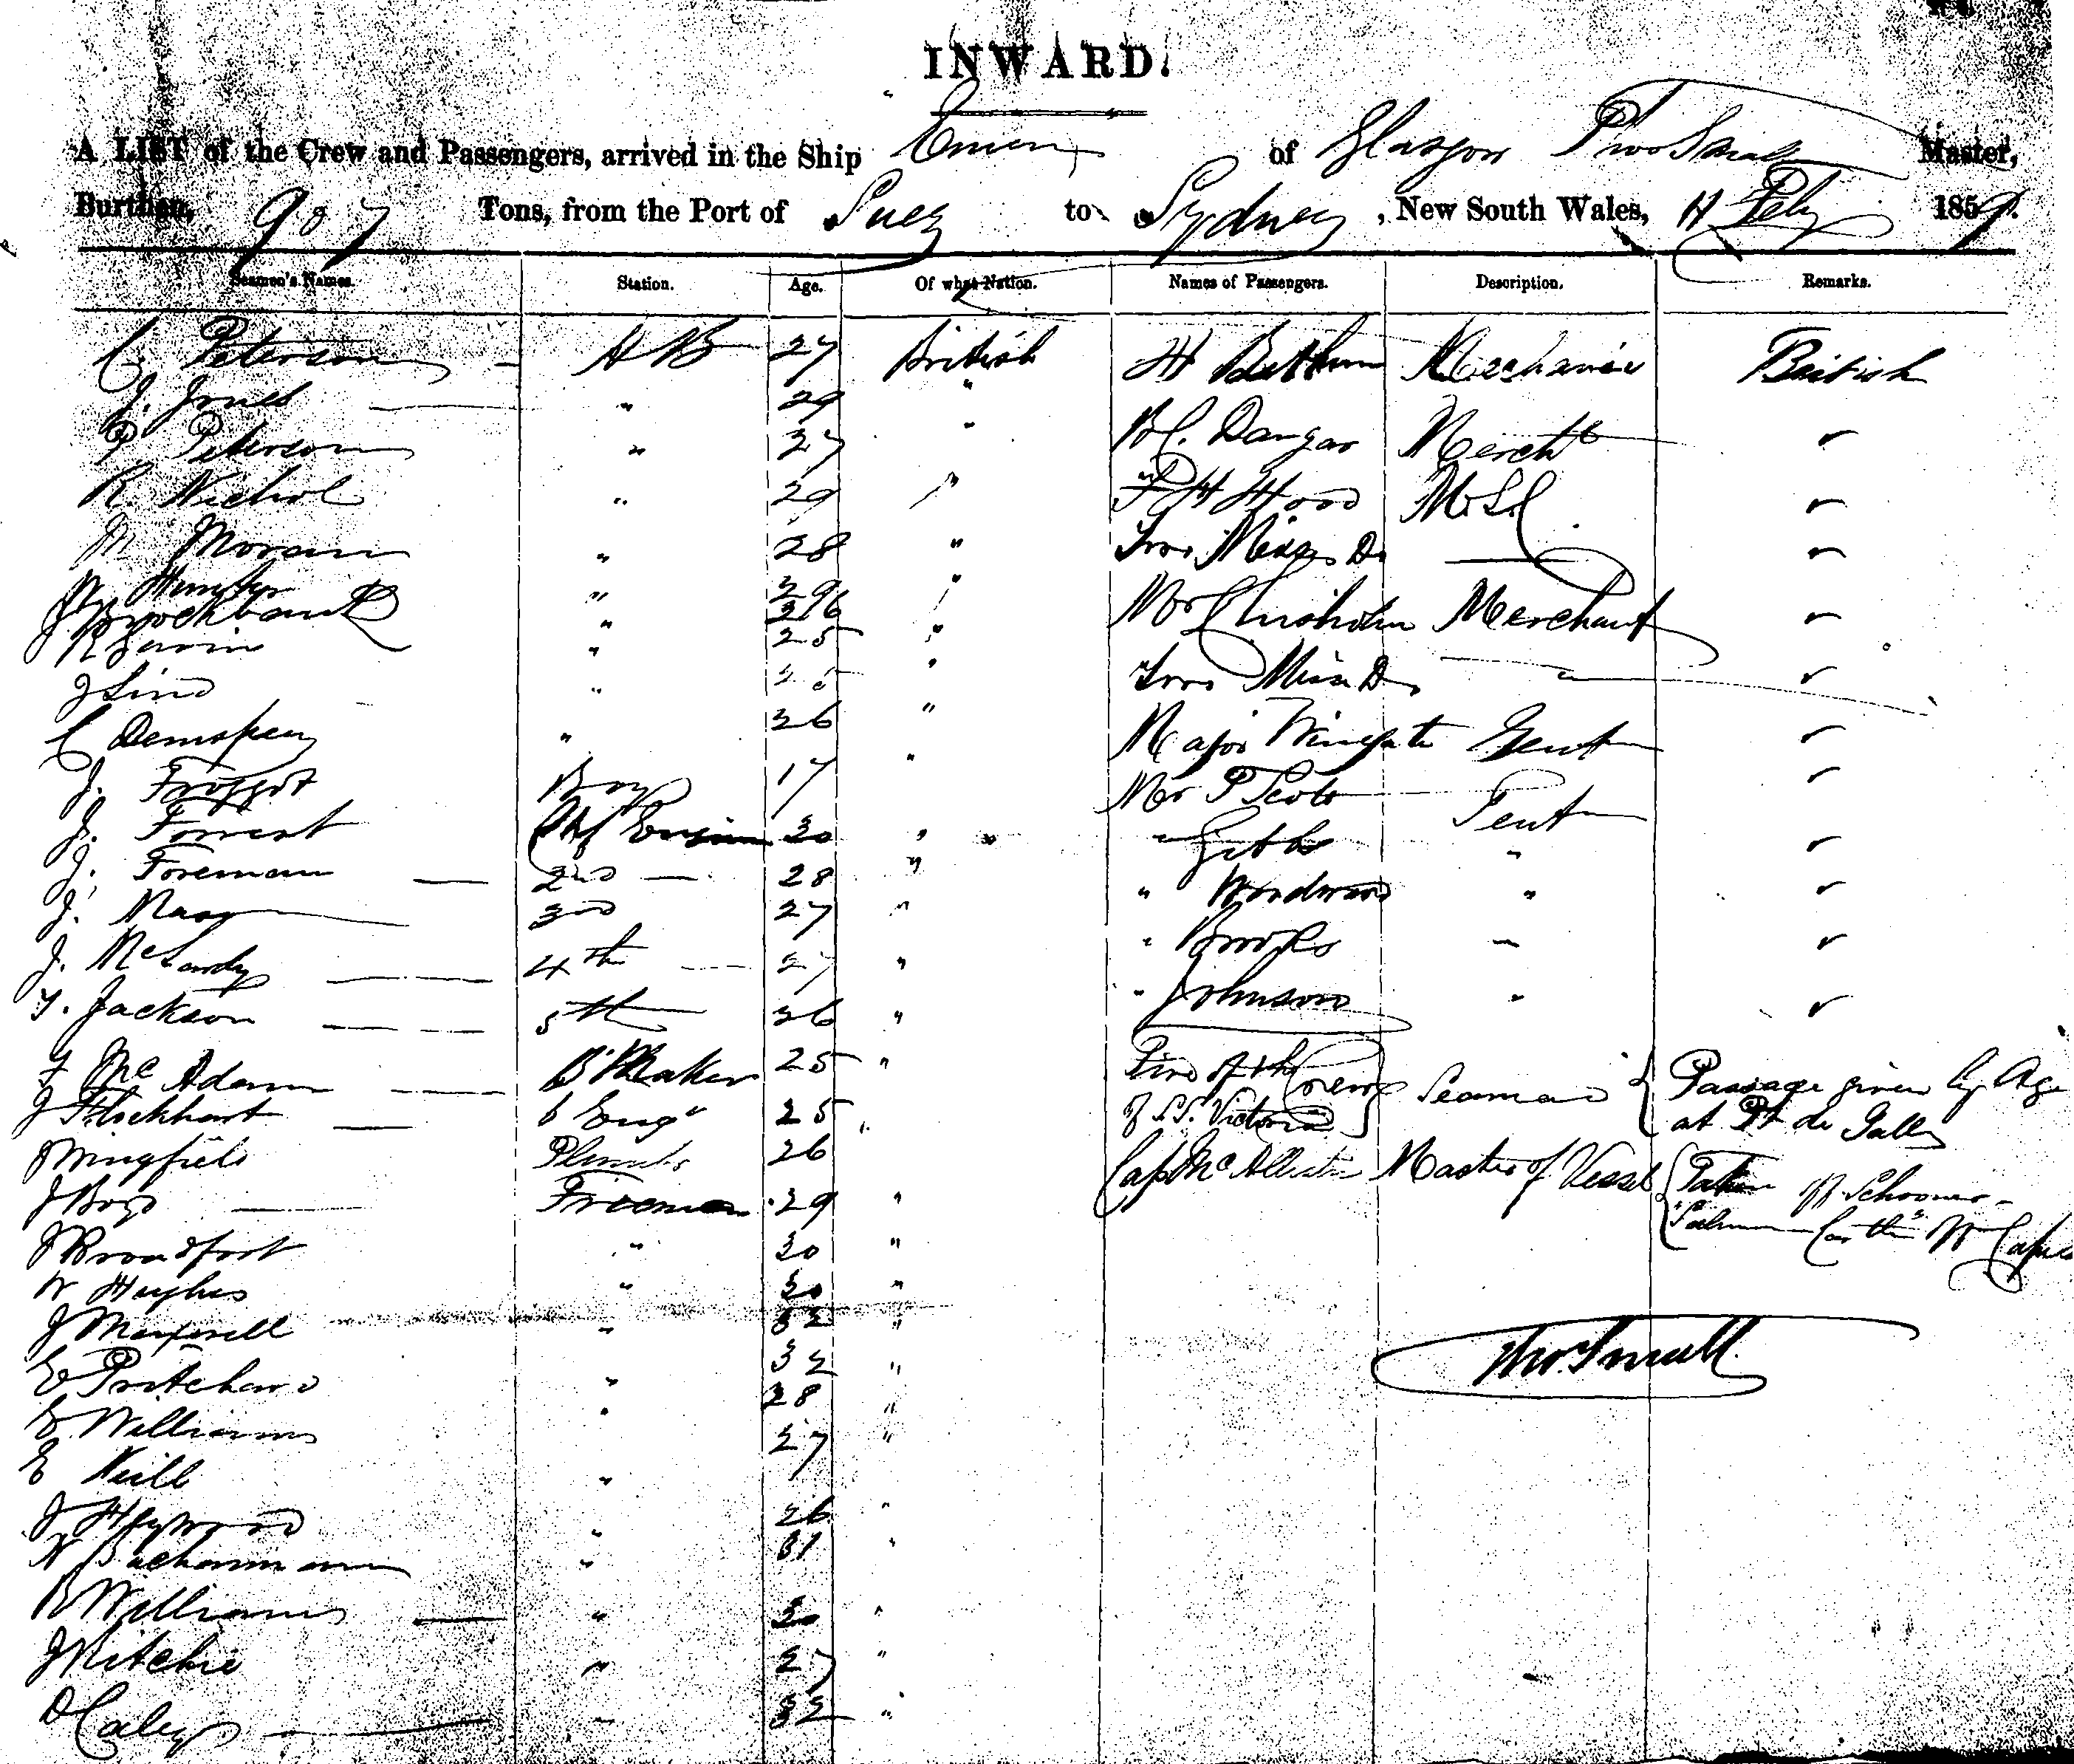 INWARD.
A LIST of the Crew and Passengers, arrived in the Ship Emeu of Glasgow Thos Small Master,
Burthen, 907 Tons, from the Port of Suez to Sydney, New South Wales, 11 Feby 1859.
Seamen's Names. Station. Age. Of what Nation. Names of Passengers. Description. Remarks.
C Peterson AB 27 British H Mechanic British
J. Jones " 29 "
P Peterson " 27 " H C. Dangar Mercht
R Nichol " 29 " F H Hood M.L.C.
M Moran " 28 " Two Misses Do
Hunter " 29 "
J Brockbank " 26 " Mr Chisholm Merchant
R " 25 "
J Lind " 25 " Two Miss Do
C Dempsey " 26 " Major Wingate Gent
J. Froggot Boy 17 " Mr P Scott Gent
J. Forrest Chf Engineer 30 " " Gibbs "
J. Foreman 2nd 28 " " Woodward "
J. 3rd 27 " " Brooks "
J. McLardy 4th 27 " " Johnson "
T. Jackson 5th 26 "
F McAdam B. Maker 25 " Five of the Crew Seamen Passage given by Agt
J Flockhart 6 Engr 25 " of S.S. Victoria at Pt de Galle
J Wingfield 26 Capt McAllister Master of Vessel Taken off Schooner
J Boyd Fireman 29 "
J Broadfoot " 30 "
W Hughes " 30 "
J Maxwell " 32 "
E Pritchard " 32 " Thos Small
E Williams " 28 "
E Neill " 27 "
J Heywood " 26 "
" 31 "
R Williams " 30 "
J Ritchie " 27 "
D Caley " 32 "